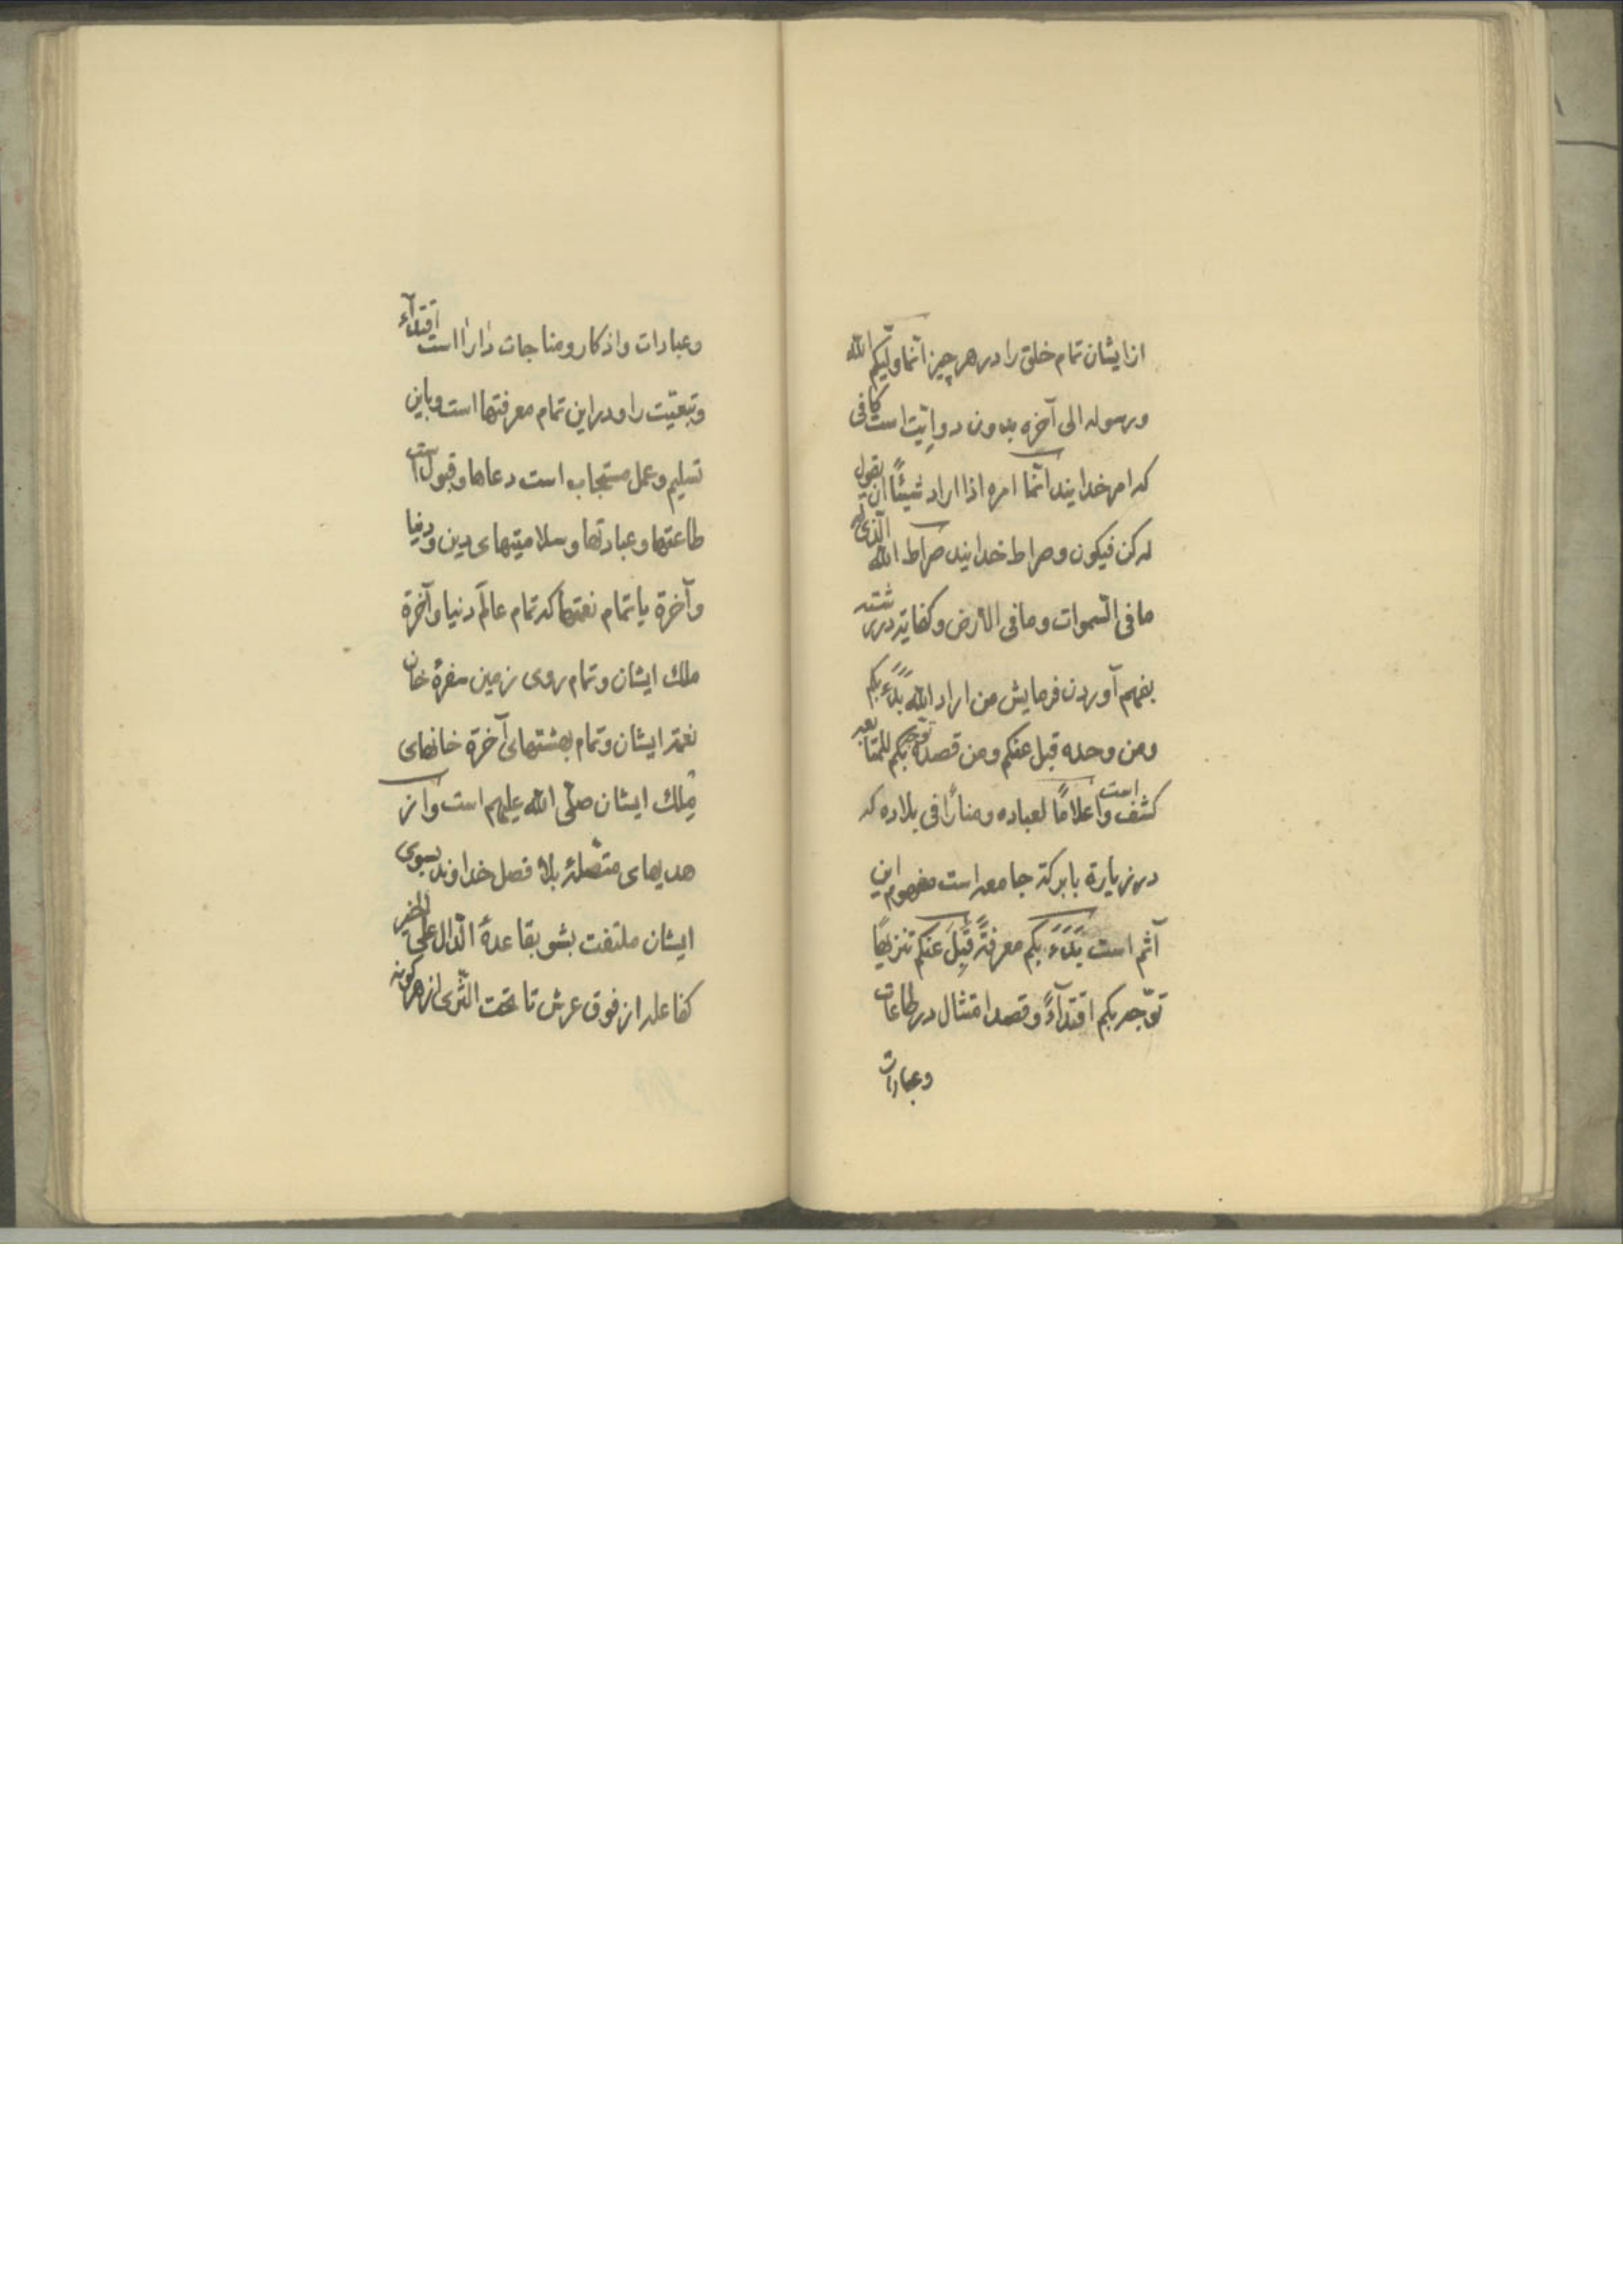 از ایشان تمام خلق را در هر چیز انّما ولیّکم الله
و رسوله الی آخره بدون در وایّت است کافی
که امر خدایند انّما امره اذا اراد شیئًا ان یقول
له کن فیکون و صراط خدایند صراط الله الّذی له
ما فی السّموات و ما فی الأرض و کفایة در رشته
بفهم آوردن فرمایش من اراد الله بَدَءَ بکم
ومن وحده قبل عنکم ومن قصده توجه بکم للمتابعه
کشف است واعلامًا لعباده ومنارًا فی بلاده که
در زیارة با برکة جامعه است مفهوم این
آثم است بَدَءَ بکم معرفةً قَبِلَ عنکم تنزیهًا
توّجه بکم اقتدآءً و قصد امتثال در طاعات
وعبارات
وعبادات واذکار ومناجات دارا است اقتدآء
وتبعیّت را ودر این تمام معرفتها است وباین
تسلیم وعمل مستجاب است دعاها وقبول است
طاعتها وعبادتها وسلامتیهای دین ودنیا
وآخرة با تمام نعمتها که تمام عالَم دنیا وآخرة
ملك ایشان وتمام روی زمین سفرهٔ خان
نعمة ایشان وتمام بهشتهای آخرة خانهای
مِلك ایشان صلّی الله علیهم است واز
هدیهای متّصلهٔ بلا فصل خداوند بسوی
ایشان ملتفت بشو بقاعدهٔ الّدال علی الخیر
کفاعله از فوق عرش تا تحت الثّری از هر گونه